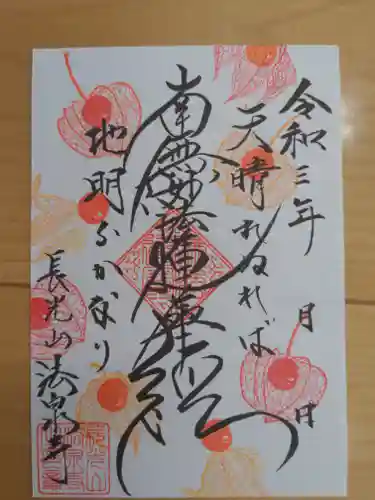 令和三年　月　日
天晴れぬれば
南無妙法蓮華経
地明らかなり
長光山法泉寺